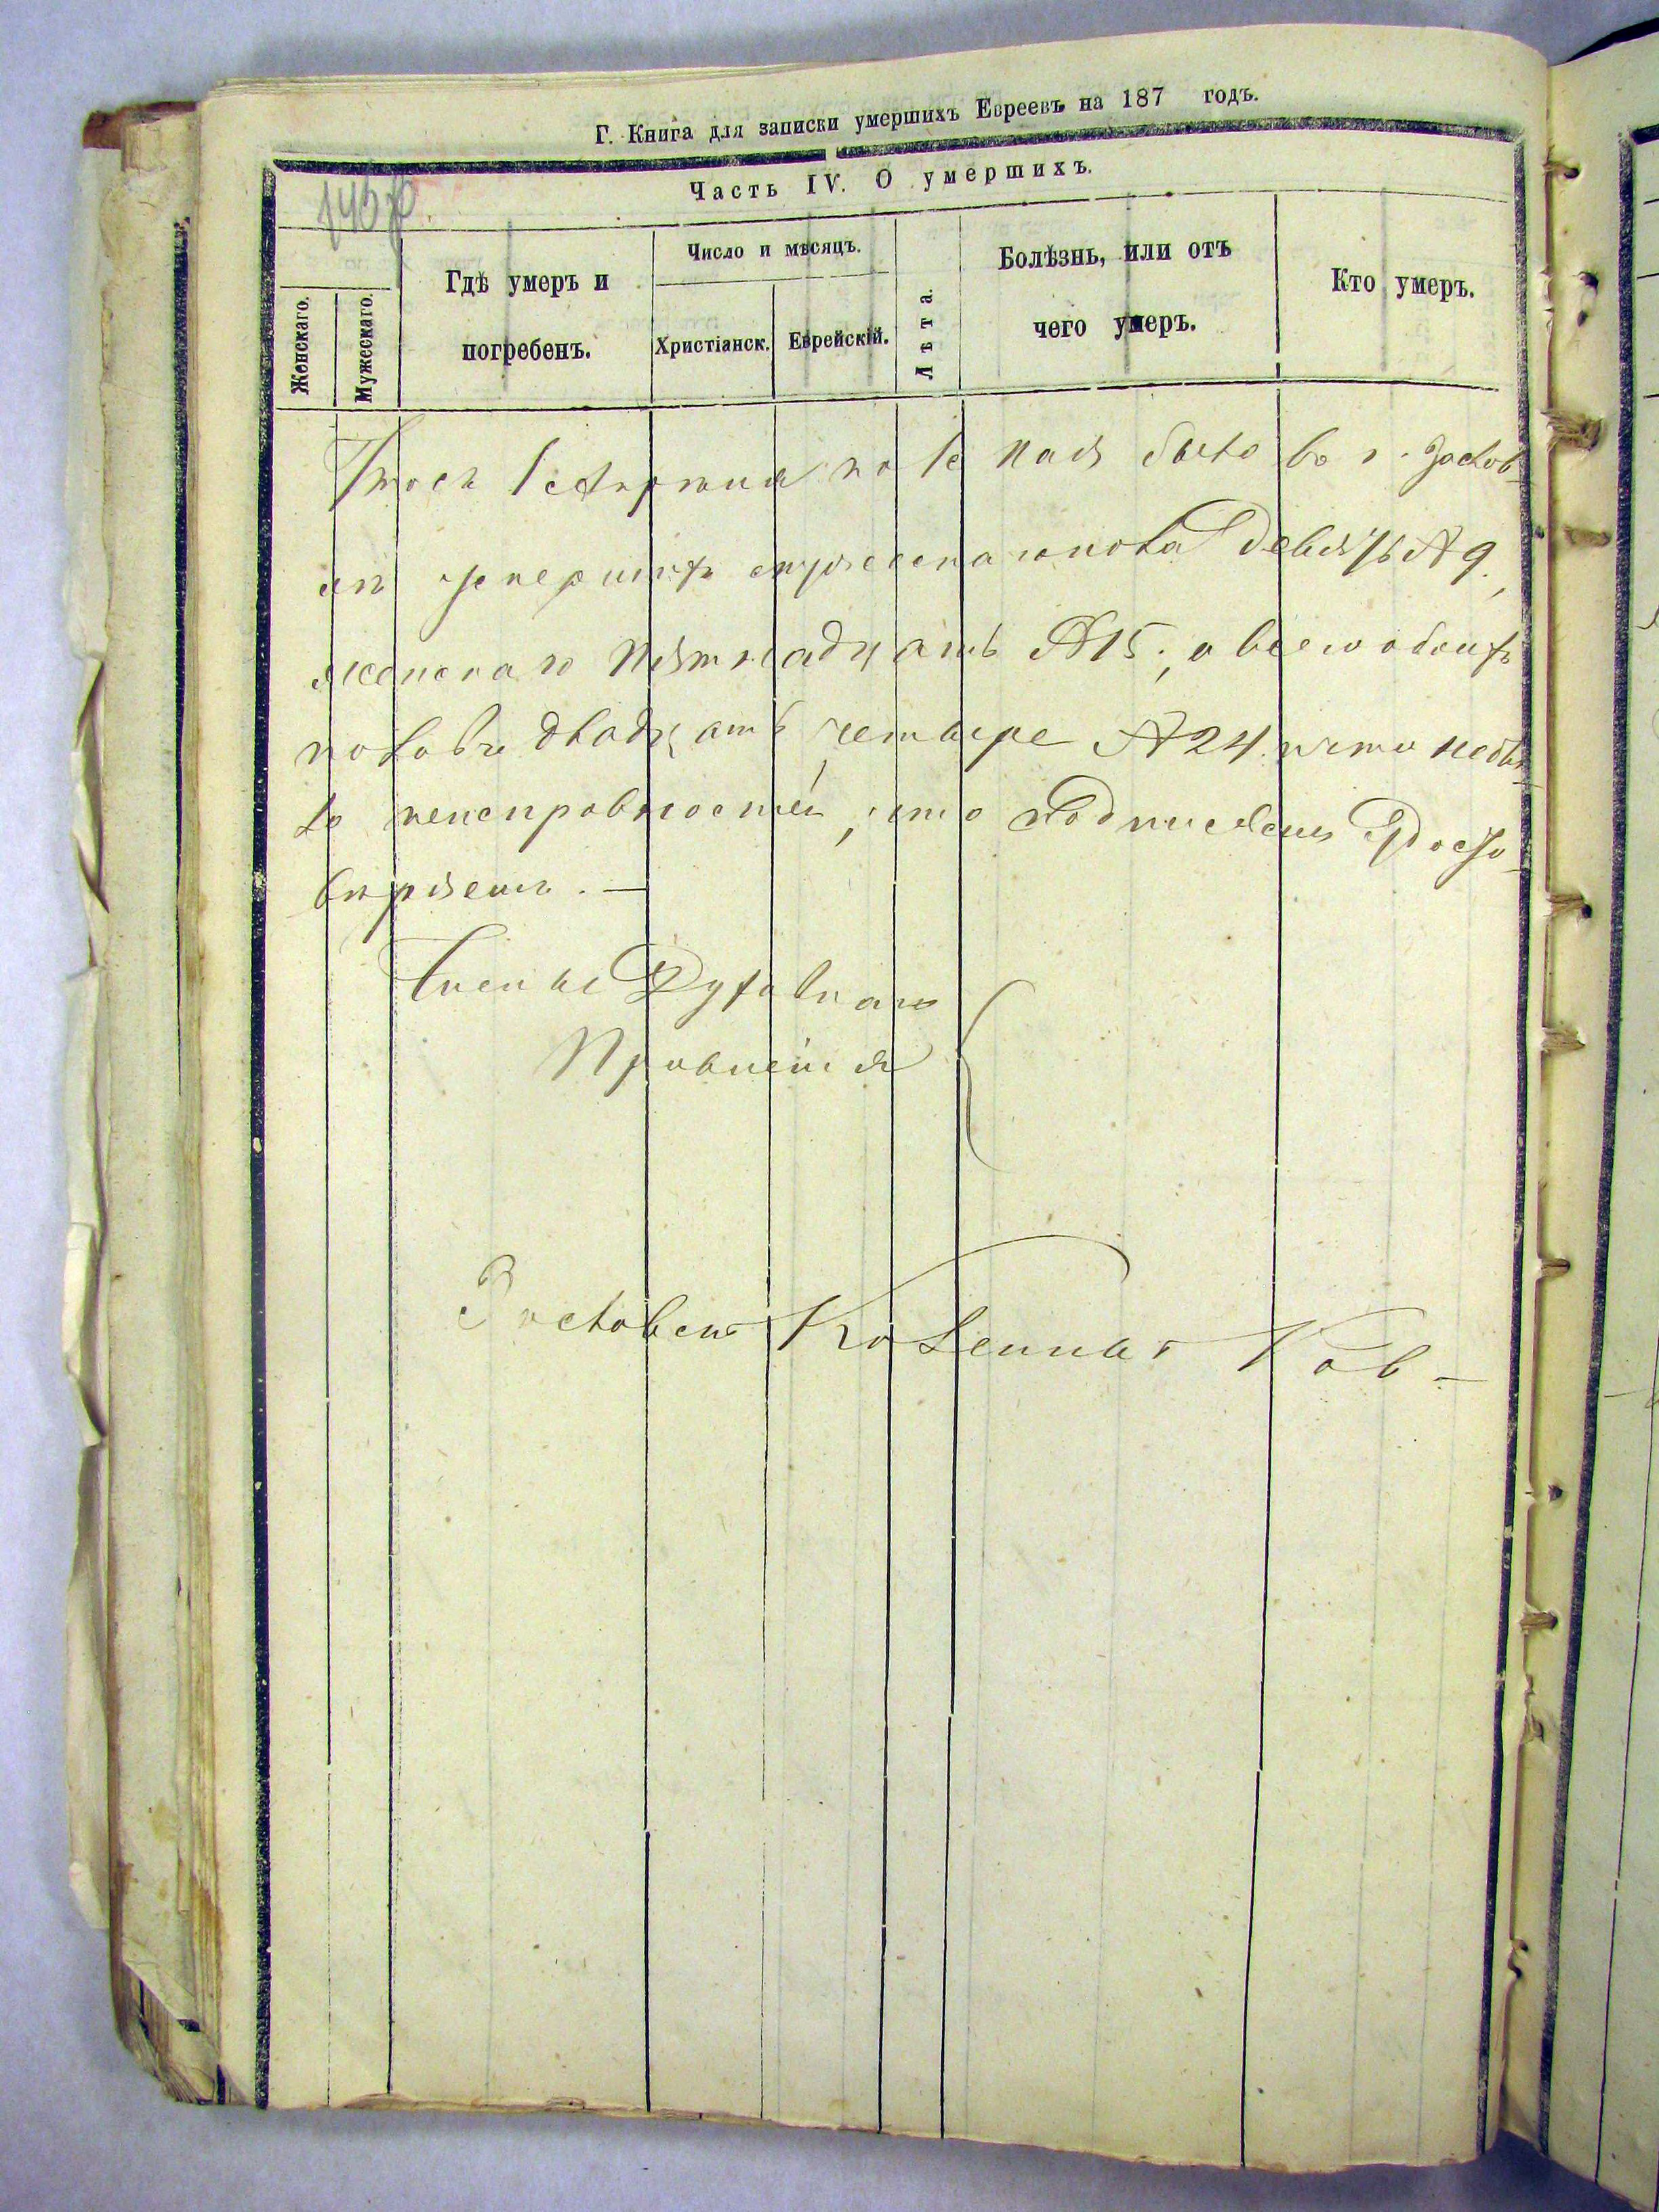 Г. Книга для записки умершихъ Евреевъ на 187 годъ.
Часть IV. О умершихъ.
Женскаго.
Мужескаго.
Гдѣ умеръ и
погребенъ.
Число и мѣсяцъ.
Христіанск.
Еврейскій.
Лѣта.
Болѣзнь, или отъ
чего умеръ.
Кто умеръ.
Апрѣля по Мая было въ г. Заслав-
лѣ умершихъ мужескаго пола Девять № 9,
женскаго пятнадцать № 15, а всего обоихъ
половъ двадцать четыре № 24. и что небы-
ло неисправностей, что Подписомъ Удосто-
вѣряемъ. —
Члены Духовнаго
Правленія
Заславскій Казенный Рав-